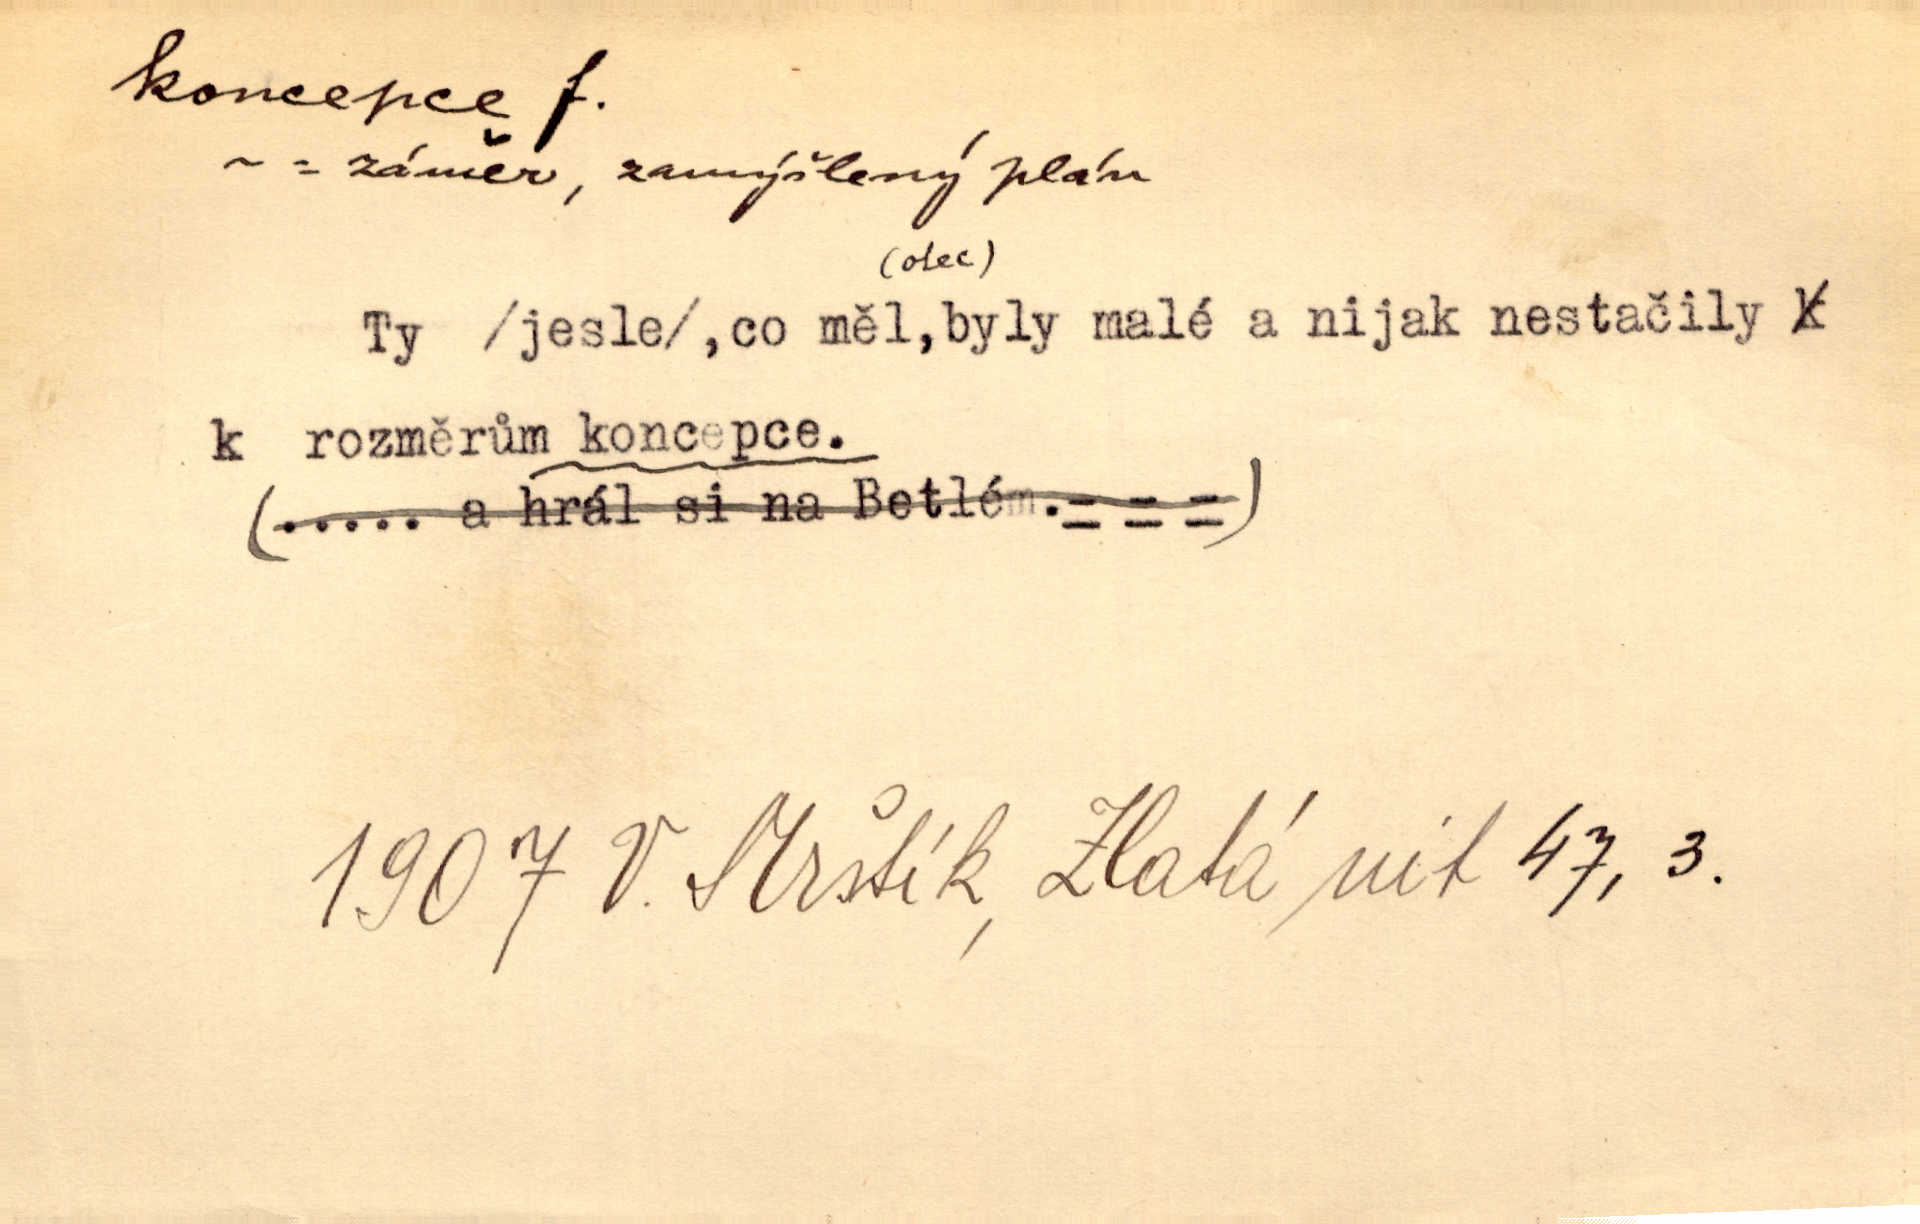 koncepce f.
~ = záměr, zamýšlený plán
(otec)
Ty /jesle/,co měl,byly malé a nijak nestačily k
k rozměrům koncepce.
(..... a hrál si na Betlém.= = =)
1907 V. Mrštík, Zlatá nit 47, 3.